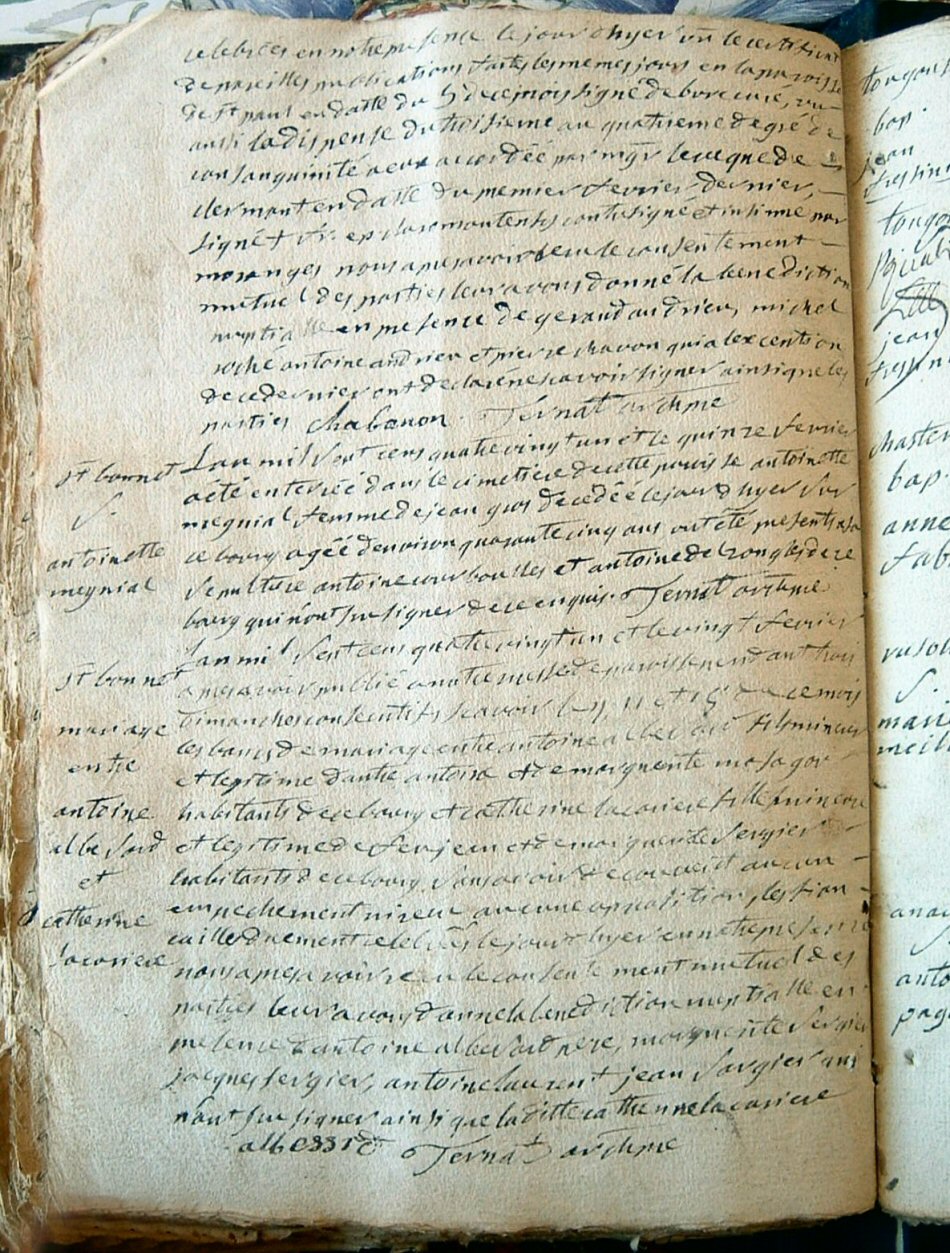 celebrées en notre presence le jour d'hyer vu le certificat
de pareilles publications faites les memes jours en la paroisse
de st paul en datte du 5 de ce mois signé debort curé, vu
aussi la dispense du troisieme au quatrieme degré de
consanguinité a eux accordée par mgr leveque de
clermont en datte du premier fevrier dernier,
signé + fr: ep claromontensis contresigné et insinué par
moranges nous apres avoir recu le consentement
mutuel des parties leur avons donné la benediction
nuptialle en presence de geraud andrieu, michel
roche antoine andrieu et pierre chavon qui a lexcention
de ce dernier ont declaré ne scavoir signer ainsi que les
parties chabanon Ternat archipre
st bonnet
S.
antoinette
meynial
Lan mil sept cens quatre vingt un et le quinze fevrier
a été enterrée dans le cimetiere de cette paroisse antoinette
meynial femme de jean gros decedée le jour d'hyer sur
ce bourg agée denviron quarante cinq ans ont été presents a sa
sepulture antoine courboulles et antoine delzongles de ce
bourg qui n'ont sçu signer de ce enquis. Ternat archipre
st bonnet
mariage
entre
antoine
albessard
et
catherine
lacoriere
Lan mil sept cens quatre vingt un et le vingt fevrier
apres avoir publié a notre messe de paroisse pendant trois
dimanches consecutifs scavoir les 4, 11 et 18 de ce mois
les bans de mariage entre antoine albessard fils mineur
et legitime d'autre antoine et de marguerite
habitants de ce bourg et catherine lacoriere fille mineure
et legitime de feu jean et de marguerite sergier
habitants de ce bourg, sans avoir decouvert aucun
empechement ni reçu aucune opposition, les fian
cailles duement celebrées le jour d'hyer en notre presence
nous apres avoir reçu le consentement mutuel des
parties leur avons donné la benediction nuptialle en
presence d'antoine albessard pere, marguerite sergier
jacques sergier, antoine laurent jean sargier qui
n'ont sçu signer ainsi que la ditte catherine lacoriere
albessard Ternat archipre
bap
jean
jean
bap
anne
S.